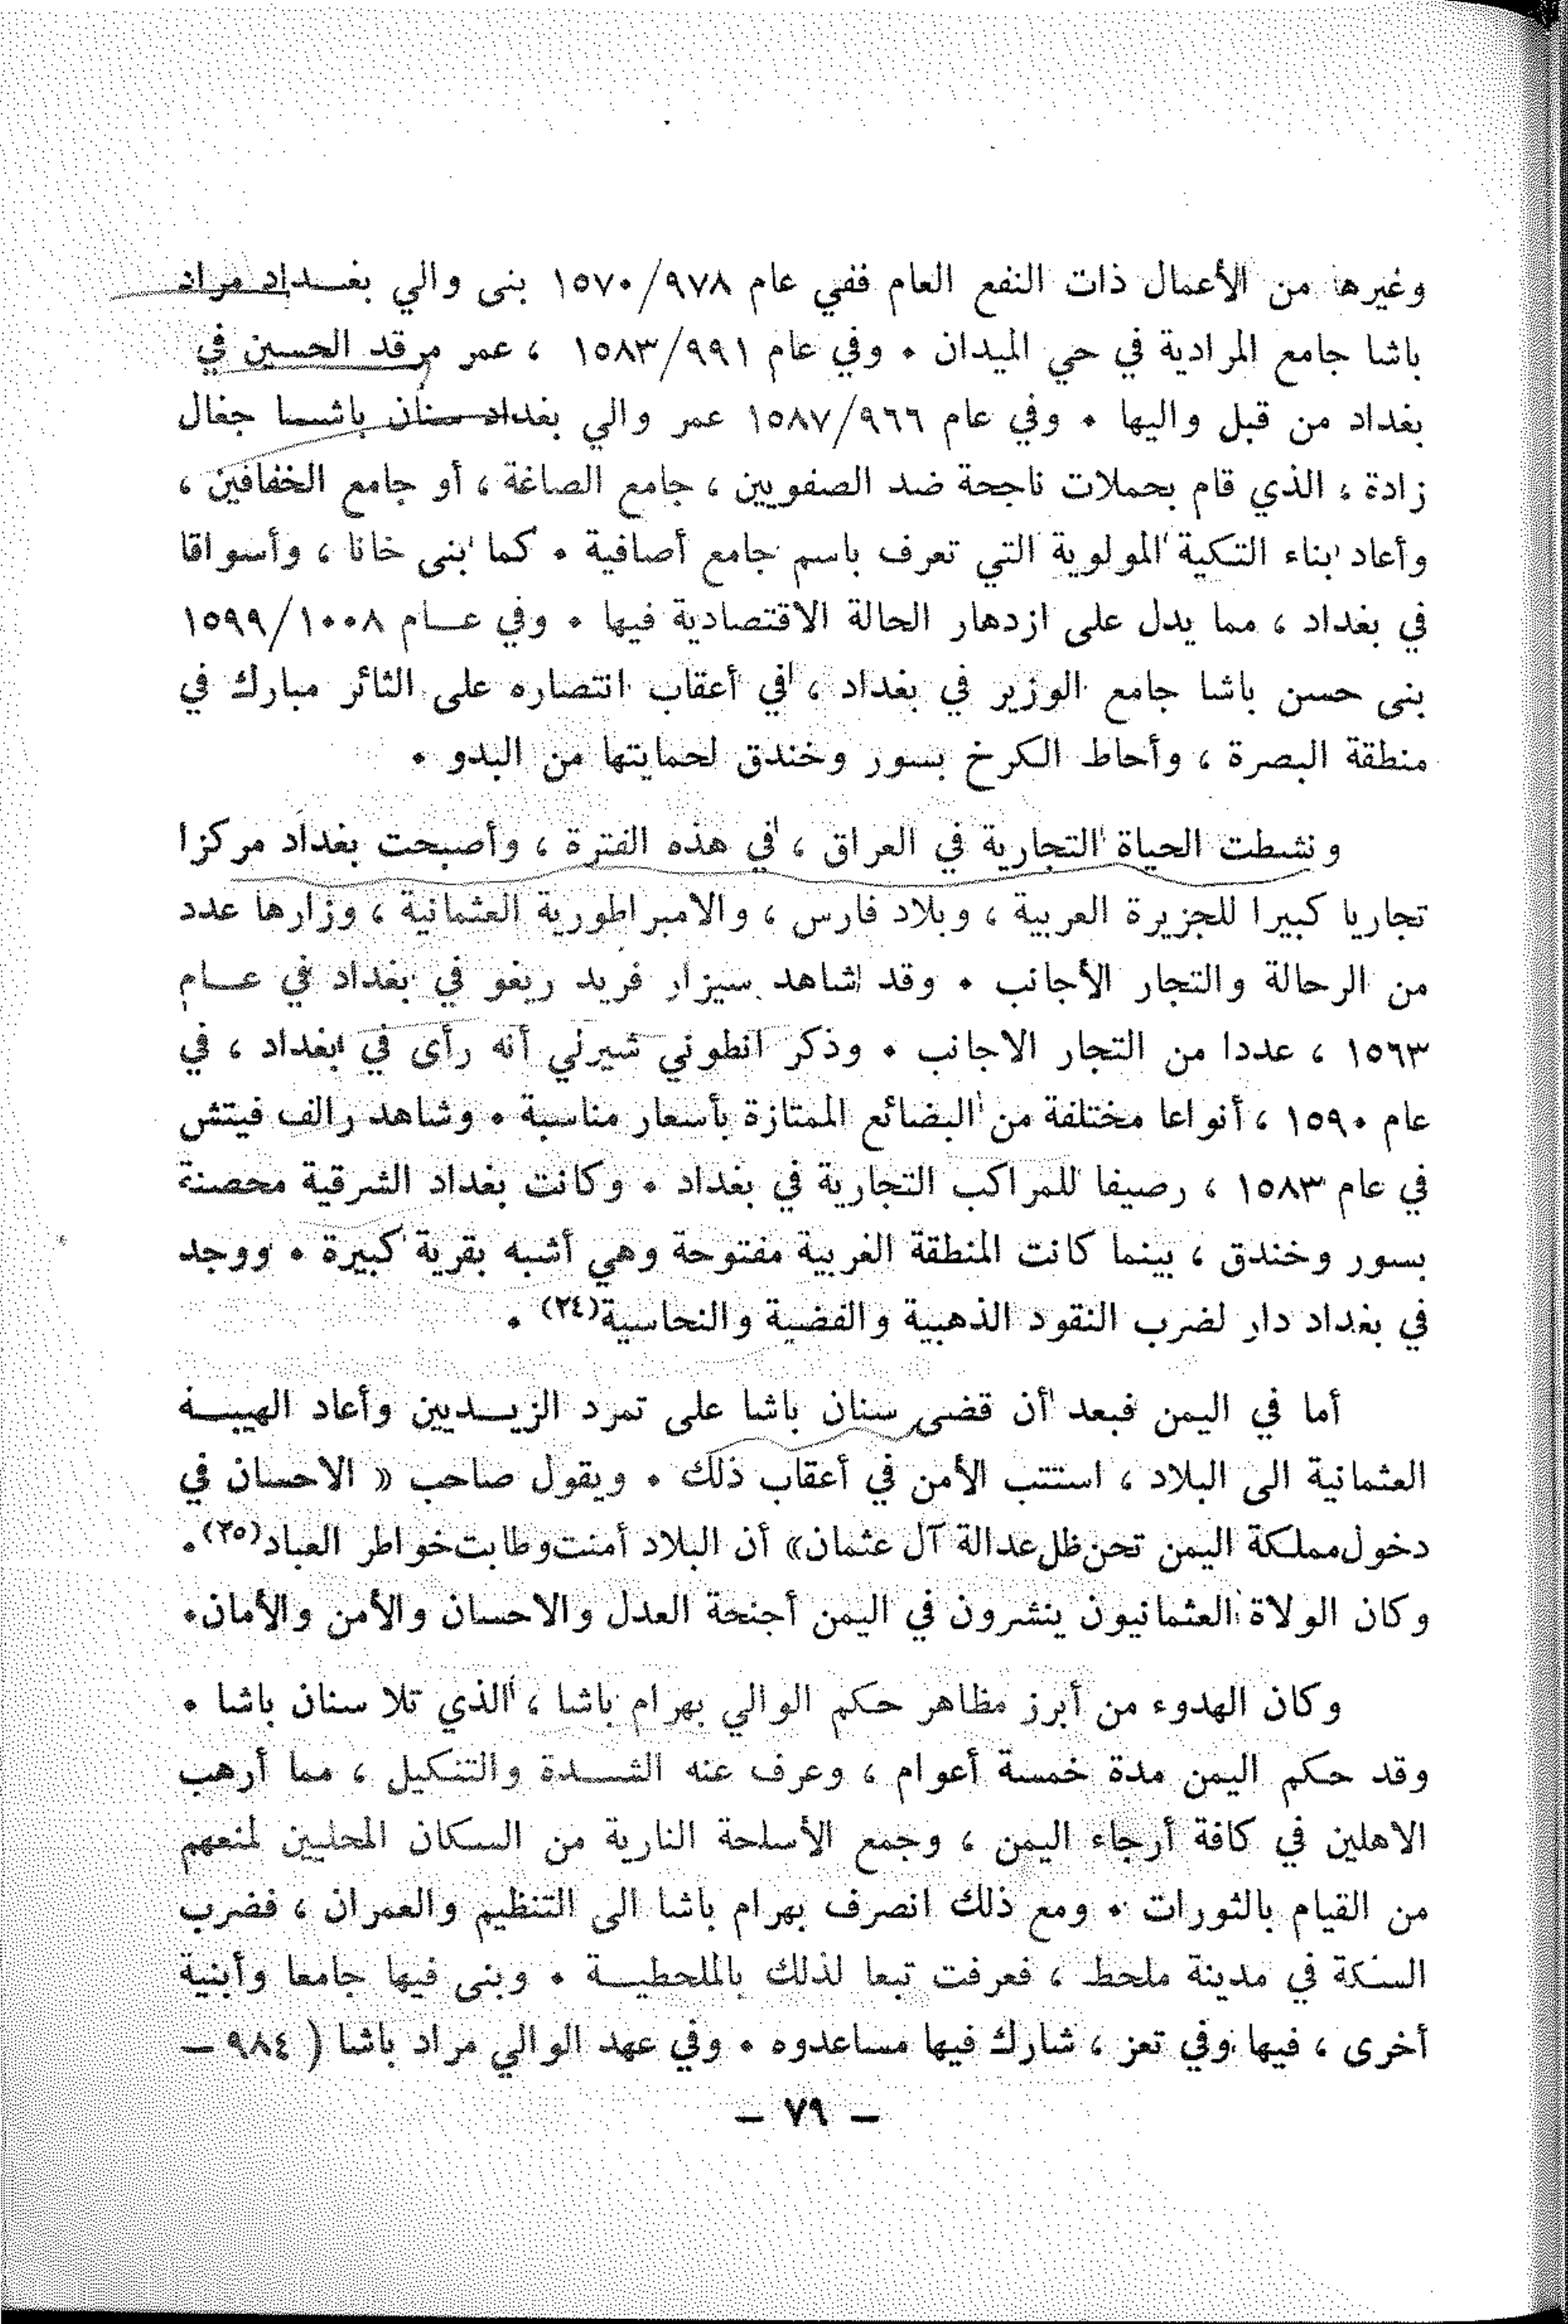 وغيرها من الأعمال ذات النفع العام ففي عام ٩٧٨/١٥٧٠ بنى والي بغـــداد مراد
باشا جامع المرادية في حي الميدان ٠ وفي عام ٩٩١/١٥٨٣ ، عمر مرقد الحسين في
بغداد من قبل واليها ٠ وفي عام ٩٦٦/١٥٨٧ عمر والي بغداد سنان باشـــا جغال
زادة ، الذي قام بحملات ناجحة ضد الصفويين ، جامع الصاغة ، أو جامع الخفافين ،
وأعاد بناء التكية المولوية التي تعرف باسم جامع أصافية ٠ كما بنى خانا ، وأسواقا
في بغداد ، مما يدل على ازدهار الحالة الاقتصادية فيها ٠ وفي عـــام ١٠٠٨/١٥٩٩
بنى حسن باشا جامع الوزير في بغداد ، في أعقاب انتصاره على الثائر مبارك في
منطقة البصرة ، وأحاط الكرخ بسور وخندق لحمايتها من البدو ٠
ونشطت الحياة التجارية في العراق ، في هذه الفترة ، وأصبحت بغداد مركزا
تجاريا كبيرا للجزيرة العربية ، وبلاد فارس ، والامبراطورية العثمانية ، وزارها عدد
من الرحالة والتجار الأجانب ٠ وقد شاهد سيزار فريد ريغو في بغداد في عـــام
١٥٦٣ ، عددا من التجار الاجانب ٠ وذكر انطوني شيرلي أنه رأى في بغداد ، في
عام ١٥٩٠ ، أنواعا مختلفة من البضائع الممتازة بأسعار مناسبة ٠ وشاهد رالف فيتش
في عام ١٥٨٣ ، رصيفا للمراكب التجارية في بغداد ٠ وكانت بغداد الشرقية محصنة
بسور وخندق ، بينما كانت المنطقة الغربية مفتوحة وهي أشبه بقرية كبيرة ٠ ووجد
في بغداد دار لضرب النقود الذهبية والفضية والنحاسية(٢٤) ٠
أما في اليمن فبعد أن قضى سنان باشا على تمرد الزيـــديين وأعاد الهيبـــة
العثمانية الى البلاد ، استتب الأمن في أعقاب ذلك ٠ ويقول صاحب « الاحسان في
دخول مملكة اليمن تحن ظل عدالة آل عثمان» أن البلاد أمنت وطابت خواطر العباد(٢٥)٠
وكان الولاة العثمانيون ينشرون في اليمن أجنحة العدل والاحسان والأمن والأمان٠
وكان الهدوء من أبرز مظاهر حكم الوالي بهرام باشا ، الذي تلا سنان باشا ٠
وقد حكم اليمن مدة خمسة أعوام ، وعرف عنه الشـــدة والتنكيل ، مما أرهب
الاهلين في كافة أرجاء اليمن ، وجمع الأسلحة النارية من السكان المحليين لمنعهم
من القيام بالثورات ٠ ومع ذلك انصرف بهرام باشا الى التنظيم والعمران ، فضرب
السكة في مدينة ملحظ ، فعرفت تبعا لذلك بالملحطيـــة ٠ وبنى فيها جامعا وأبنية
أخرى ، فيها وفي تعز ، شارك فيها مساعدوه ٠ وفي عهد الوالي مراد باشا ( ٩٨٤ —
— ٧٩ —